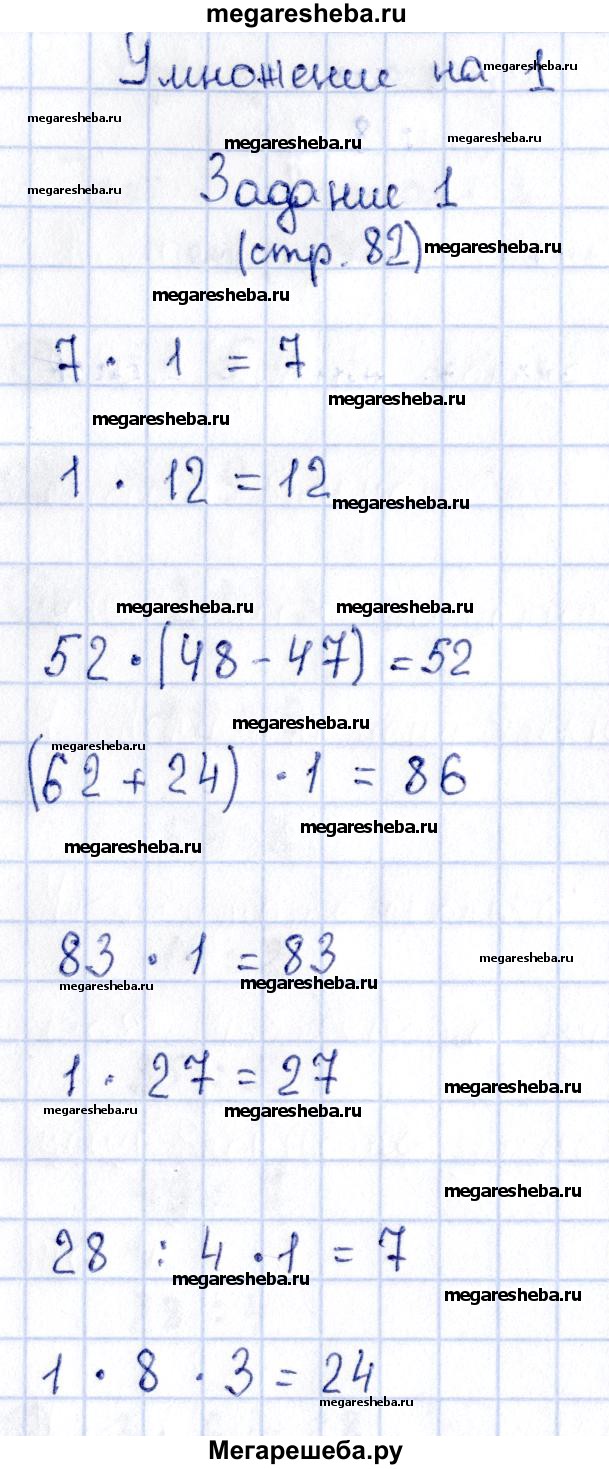 megaresheba.ru
Умножение на 1
megaresheba.ru
megaresheba.ru
megaresheba.ru
megaresheba.ru
megaresheba.ru
Задание 1
(стр. 82)
megaresheba.ru
megaresheba.ru
7 · 1 = 7
megaresheba.ru
megaresheba.ru
1 · 12 = 12
megaresheba.ru
megaresheba.ru megaresheba.ru
52 · (48 - 47) = 52
megaresheba.ru
megaresheba.ru
(62 + 24) · 1 = 86
megaresheba.ru
megaresheba.ru
83 · 1 = 83
megaresheba.ru
megaresheba.ru megaresheba.ru
1 · 27 = 27
megaresheba.ru
megaresheba.ru megaresheba.ru
megaresheba.ru
28 : 4 · 1 = 7
megaresheba.ru
megaresheba.ru
1 · 8 · 3 = 24
megaresheba.ru
Мегарешеба.ру